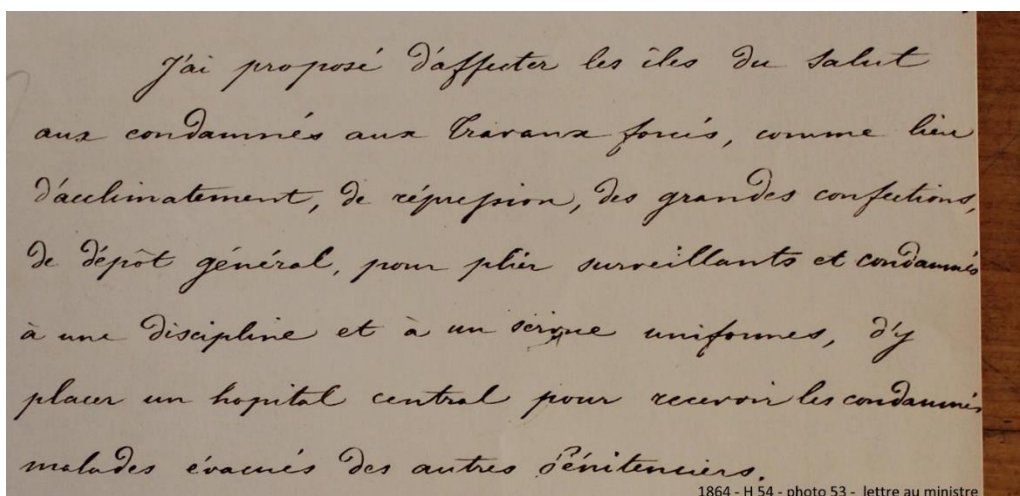 J'ai proposé d'affecter les îles du Salut
aux condamnés aux Travaux forcés, comme lieu
d'acclimatement, de répression, des grandes confections,
de dépôt général, pour plier surveillants et condamnés
à une discipline et à un uniformes, d'y
placer un hopital central pour recevoir les condamnés
malades évacués des autres Pénitenciers.
1864 - H 54 - photo 53 - lettre au ministre